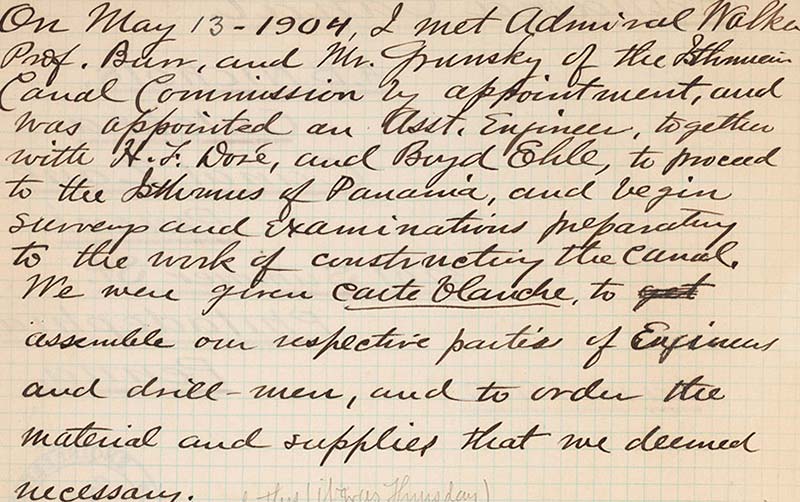 On May 13 - 1904, I met Admiral Walke
Prof. Burr, and Mr. Grunsky of the Isthmian
Canal Commission by appointment, and
was appointed an Asst. Engineer, together
with H. F. Dosé, and Boyd Ehle, to proceed
to the Isthmus of Panama, and begin
surveys and examinations preparatory
to the work of constructing the Canal.
We were given carte blanche, to get
assemble our respective parties of Engineers
and drill-men, and to order the
material and supplies that we deemed
necessary. (it was Thursday)